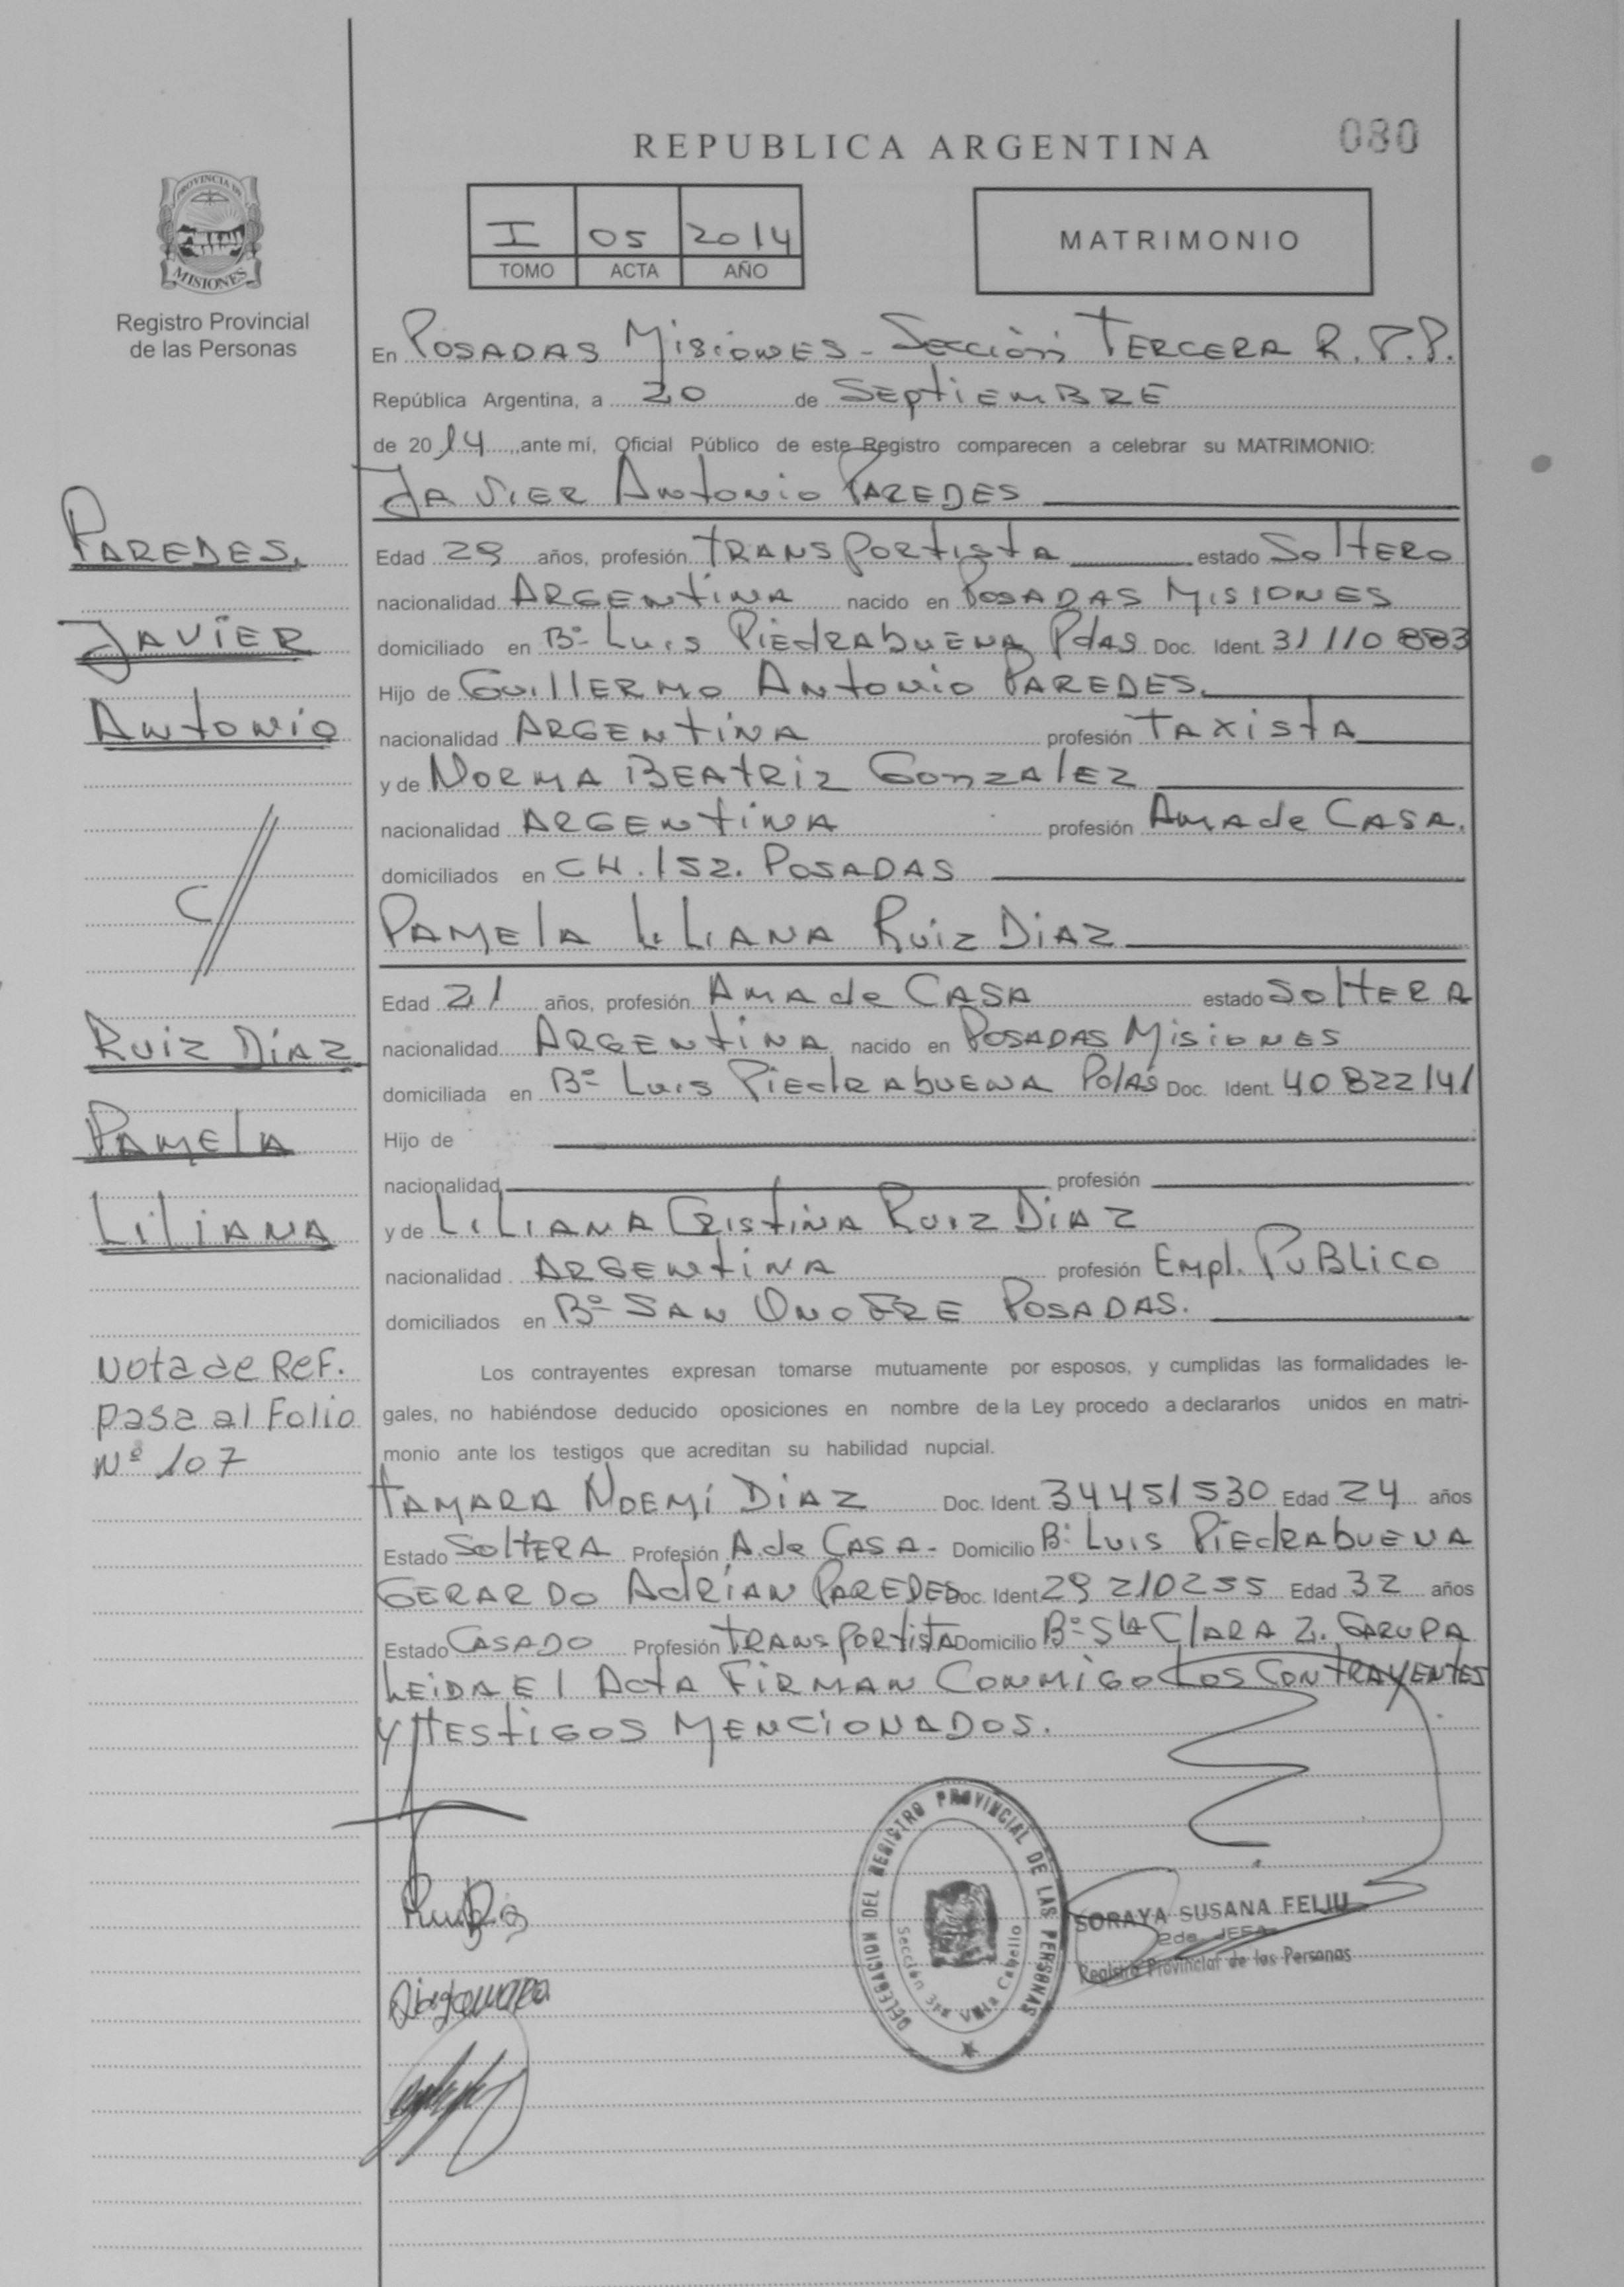 REPUBLICA ARGENTINA
080
PROVINCIA DE
MISIONES
Registro Provincial
de las Personas
I 05 2014
TOMO ACTA AÑO
MATRIMONIO
En POSADAS MISIONES - Sección TERCERA R.P.P.
República Argentina, a 20 de SEPTIEMBRE
de 2014, ante mí, Oficial Público de este Registro comparecen a celebrar su MATRIMONIO:
JAVIER Antonio PAREDES
Edad 29 años, profesión TRANSPORTISTA estado SOLTERO
nacionalidad ARGENTINA nacido en POSADAS MISIONES
domiciliado en Bº LUIS PIEDRABUENA Pdas Doc. Ident. 31110883
Hijo de GUILLERMO ANTONIO PAREDES.
nacionalidad ARGENTINA profesión TAXISTA
y de NORMA BEATRIZ GONZALEZ
nacionalidad ARGENTINA profesión AMA de CASA.
domiciliados en CH. 152. POSADAS
PAMELA LILIANA RUIZ DIAZ
Edad 21 años, profesión AMA de CASA estado SOLTERA
nacionalidad ARGENTINA nacido en POSADAS MISIONES
domiciliada en Bº LUIS PIEDRABUENA Pdas Doc. Ident. 40822141
Hijo de
nacionalidad profesión
y de LILIANA CRISTINA RUIZ DIAZ
nacionalidad ARGENTINA profesión Empl. PUBLICO
domiciliados en Bº SAN ONOFRE POSADAS.
Los contrayentes expresan tomarse mutuamente por esposos, y cumplidas las formalidades le-
gales, no habiéndose deducido oposiciones en nombre de la Ley procedo a declararlos unidos en matri-
monio ante los testigos que acreditan su habilidad nupcial.
TAMARA NOEMÍ DIAZ Doc. Ident. 34451530 Edad 24 años
Estado SOLTERA Profesión A.de CASA- Domicilio Bº LUIS PIEDRABUENA
GERARDO ADRÍAN PAREDES Doc. Ident 29210255 Edad 32 años
Estado CASADO Profesión TRANSPORTISTA Domicilio Bº Sta CLARA 2. GARUPA
LEIDA El ActA FIRMAN CONMIGO LOS CONTRAYENTES
Y TESTIGOS MENCIONADOS.
PAREDES,
JAVIER
Antonio
C//
RUIZ DÍAZ
PAMELA
LILIANA
Nota de REF.
pasa al Folio
Nº 107
DELEGACION DEL REGISTRO PROVINCIAL DE LAS PERSONAS
Sección 3ra Villa Cabello
SORAYA SUSANA FELIU
2da JEFA
Registro Provincial de las Personas